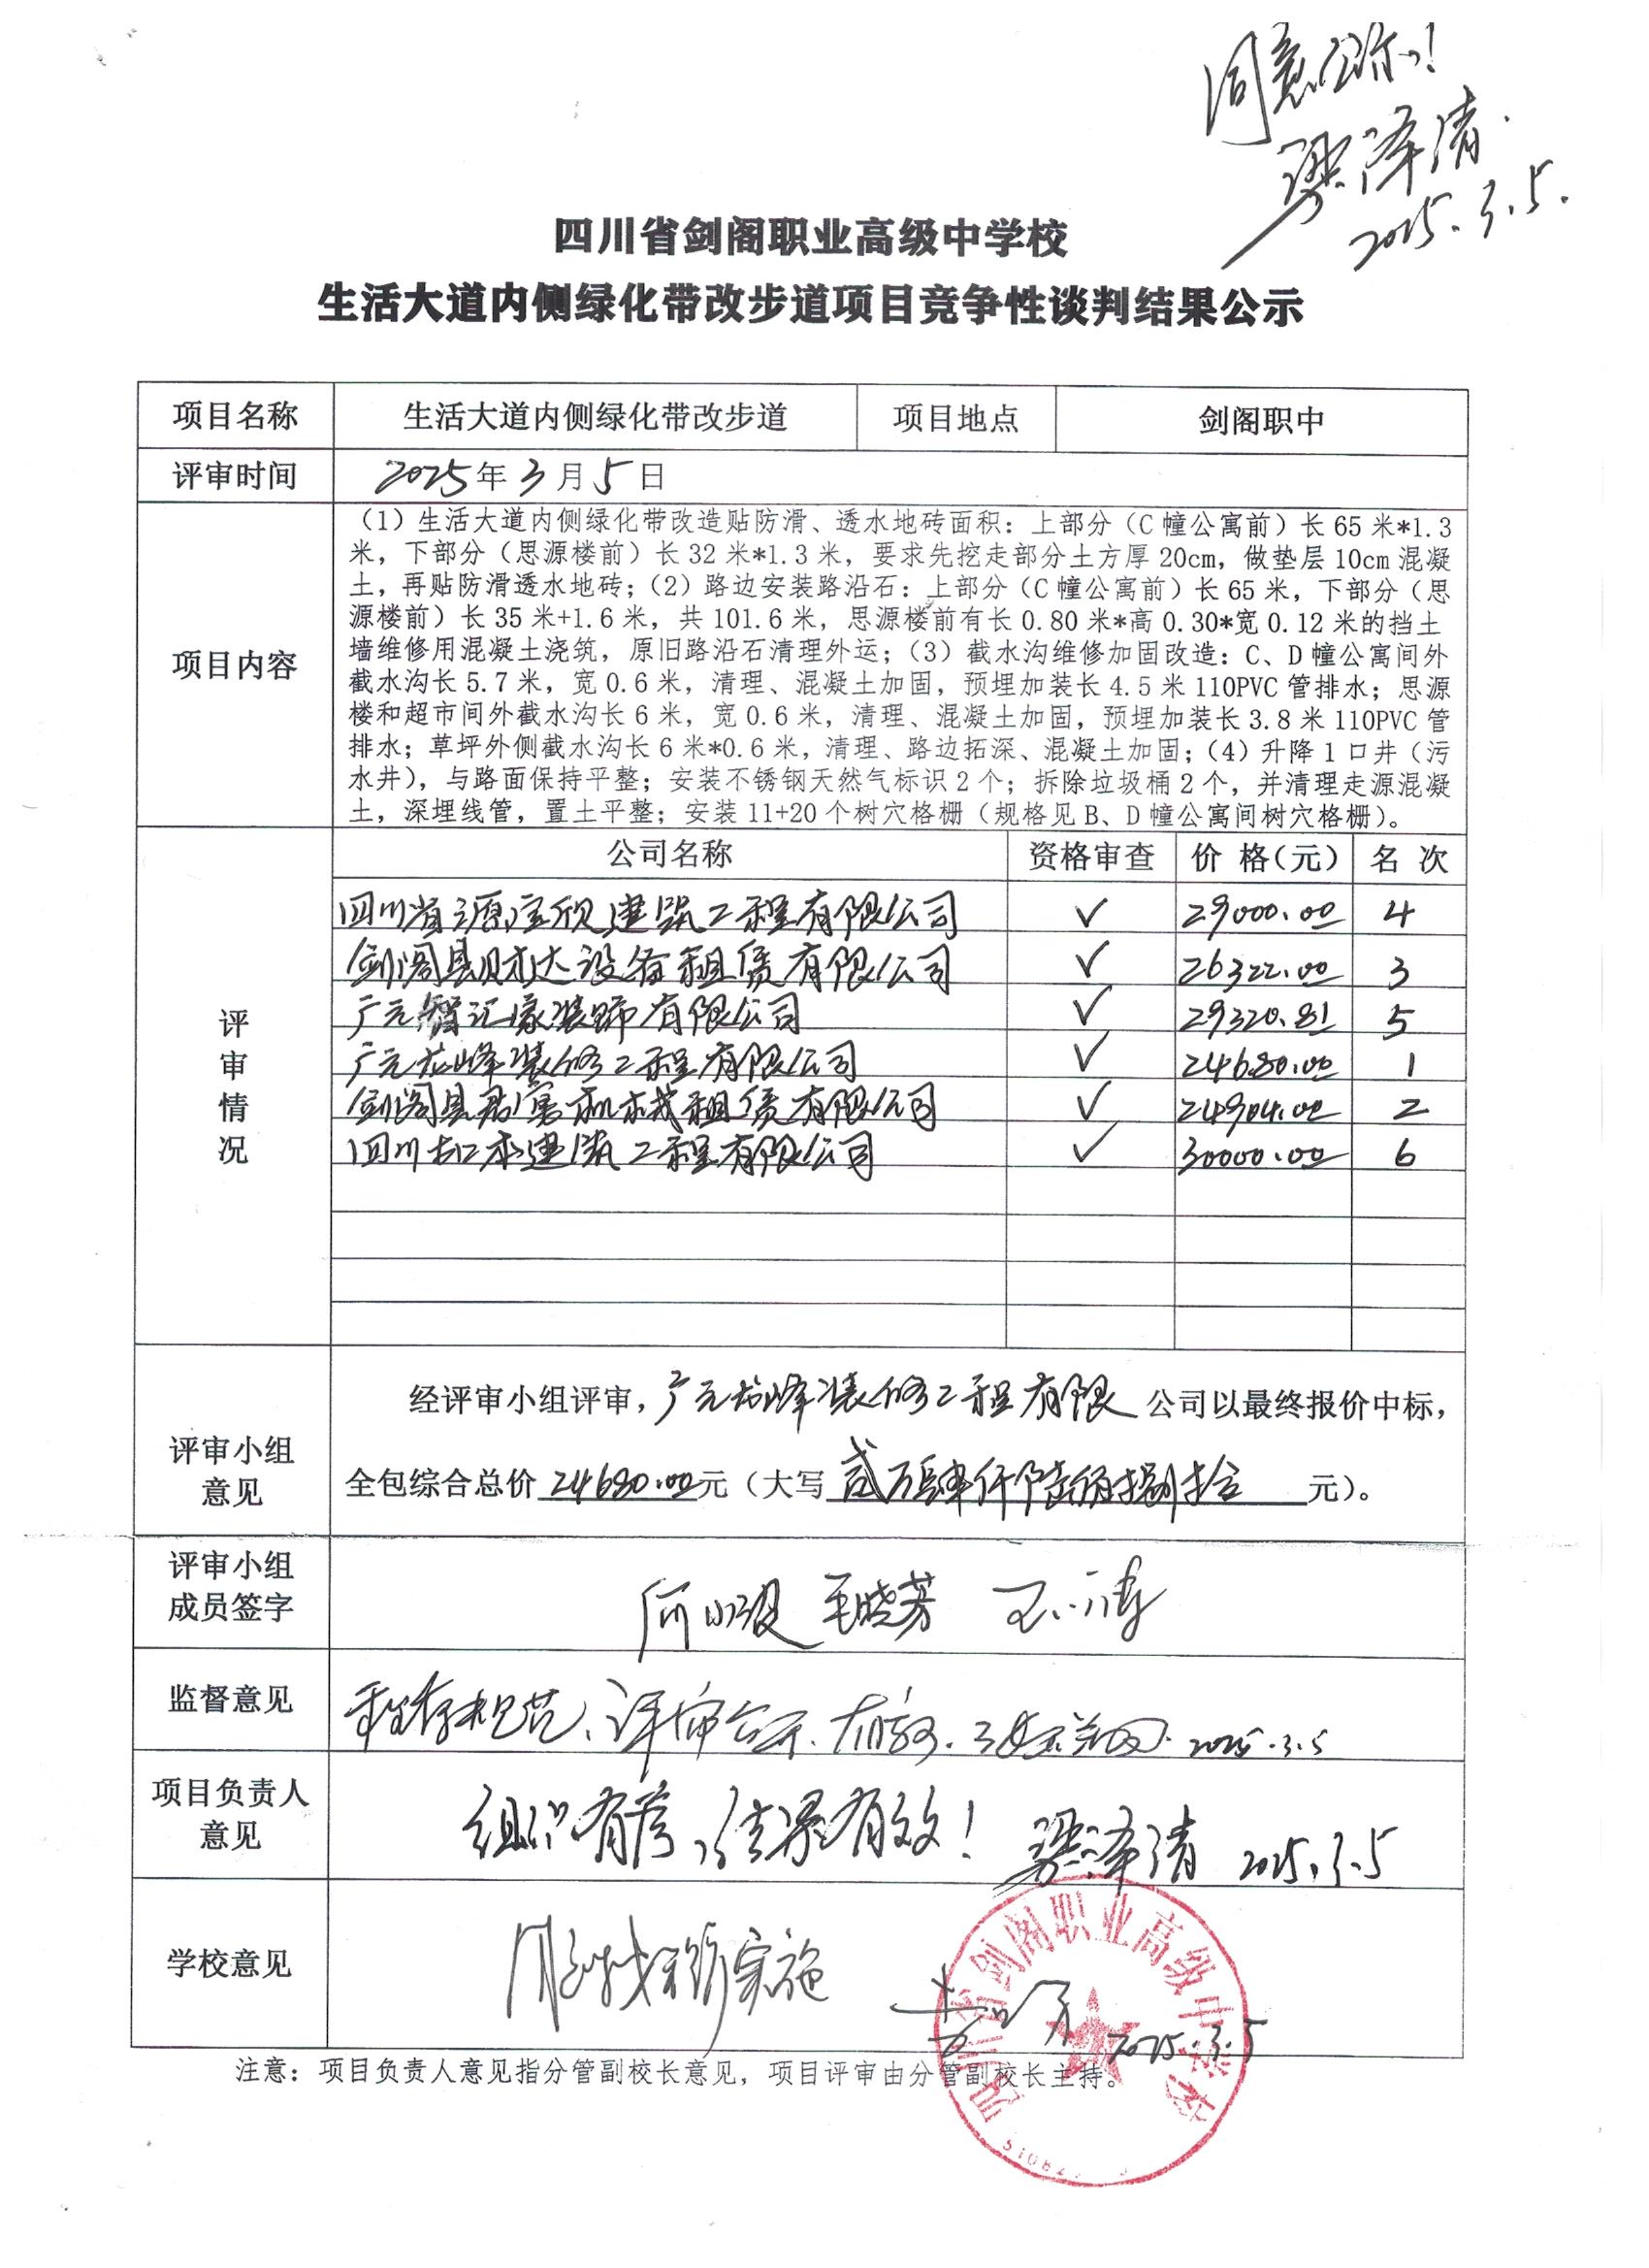 同意公示!
梁泽清
2025.3.5.
四川省剑阁职业高级中学校
生活大道内侧绿化带改步道项目竞争性谈判结果公示
项目名称 生活大道内侧绿化带改步道 项目地点 剑阁职中
评审时间 2025年3月5日
(1)生活大道内侧绿化带改造贴防滑、透水地砖面积:上部分(C幢公寓前)长65米*1.3
米,下部分(思源楼前)长32米*1.3米,要求先挖走部分土方厚20cm,做垫层10cm混凝
土,再贴防滑透水地砖;(2)路边安装路沿石:上部分(C幢公寓前)长65米,下部分(思
源楼前)长35米+1.6米,共101.6米,思源楼前有长0.80米*高0.30*宽0.12米的挡土
项目内容 墙维修用混凝土浇筑,原旧路沿石清理外运;(3)截水沟维修加固改造:C、D幢公寓间外
截水沟长5.7米,宽0.6米,清理、混凝土加固,预埋加装长4.5米110PVC管排水;思源
楼和超市间外截水沟长6米,宽0.6米,清理、混凝土加固,预埋加装长3.8米110PVC管
排水;草坪外侧截水沟长6米*0.6米,清理、路边拓深、混凝土加固;(4)升降1口井(污
水井),与路面保持平整;安装不锈钢天然气标识2个;拆除垃圾桶2个,并清理走源混凝
土,深埋线管,置土平整;安装11+20个树穴格栅(规格见B、D幢公寓间树穴格栅)。
评审情况
公司名称 资格审查 价 格(元) 名 次
四川省源宝欣建筑工程有限公司 ✓ 29000.00 4
剑阁县财达设备租赁有限公司 ✓ 26322.00 3
广元智汇家装饰有限公司 ✓ 29320.81 5
广元龙峰装修工程有限公司 ✓ 24680.00 1
剑阁县君寓机械租赁有限公司 ✓ 24904.00 2
四川 本建筑工程有限公司 ✓ 30000.00 6
评审小组
意见
经评审小组评审,广元龙峰装修工程有限公司以最终报价中标,
全包综合总价24680.00元(大写贰万肆仟陆佰捌拾元)。
评审小组
成员签字
毛晓芳
监督意见 程序规范、评审公示、有效. 2025.3.5
项目负责人
意见
组织有序,结果有效! 梁泽清 2025.3.5
学校意见 实施 2025.3.5
四川省剑阁职业高级中学校
注意:项目负责人意见指分管副校长意见,项目评审由分管副校长主持。